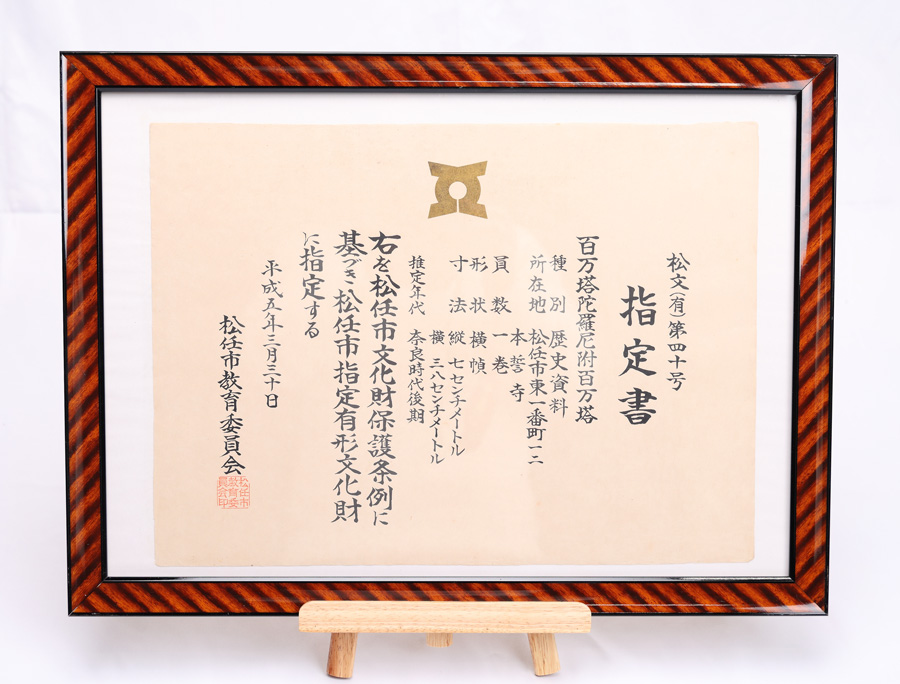 松文(有)第四十号
指定書
百万塔陀羅尼附百万塔
種別 歴史資料
所在地 松任市東一番町一二
本誓寺
員数 一巻
形状 横幀
寸法 縦 七センチメートル
横 三八センチメートル
推定年代 奈良時代後期
右を松任市文化財保護条例に
基づき松任市指定有形文化財
に指定する
平成五年三月三十日
松任市教育委員会
松任市
教育委
員会印